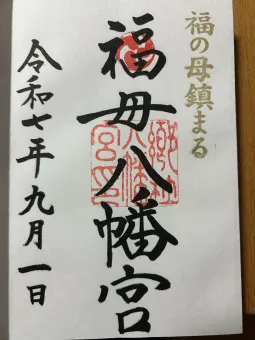 福の母鎮まる
福母八幡宮
令和七年九月一日